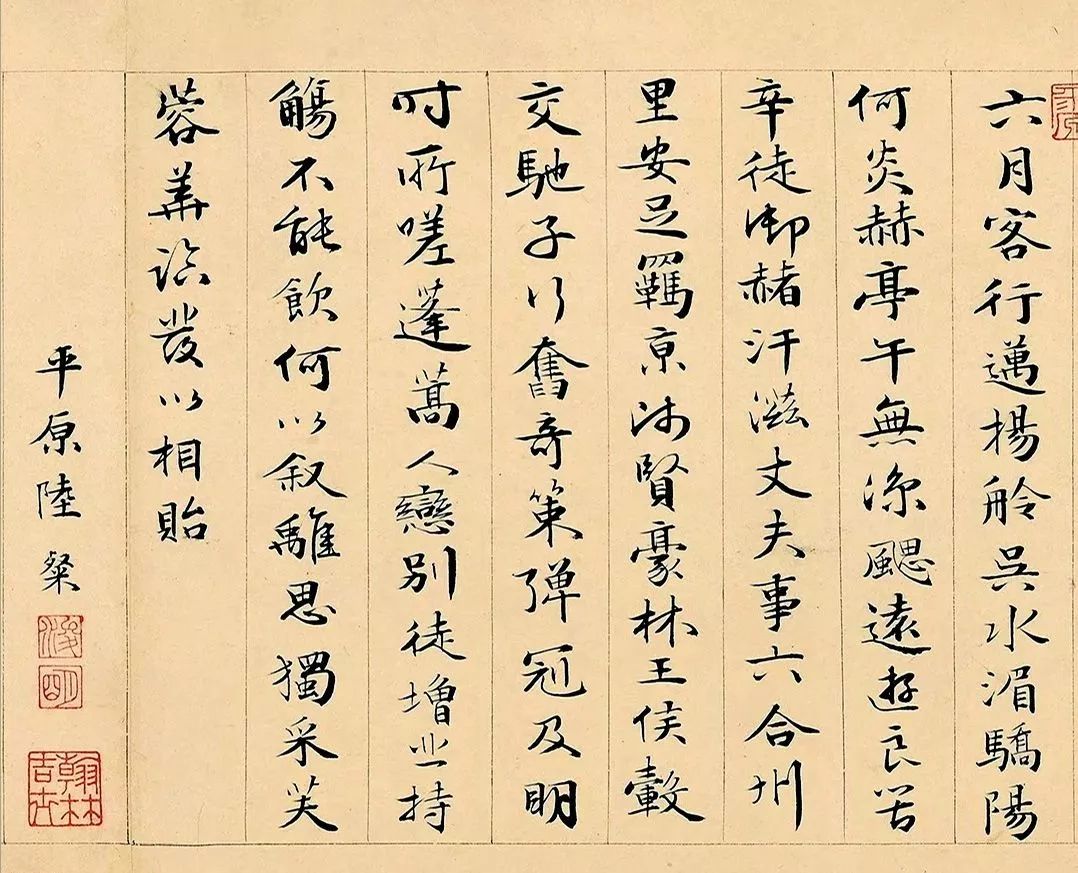 六月客行邁揚舲吳水湄驕陽
何炎赫亭午無涼颸遠遊良苦
辛徒御赭汗滋丈夫事六合州
里安足羈京洛賢豪林王侯轂
交馳子行奮奇策彈冠及明
时所嗟蓬蒿人戀別徒增悲持
觴不能飲何以叙離思獨采芙
蓉華臨發以相貽
平原陸粲
浚明
翰林吉士